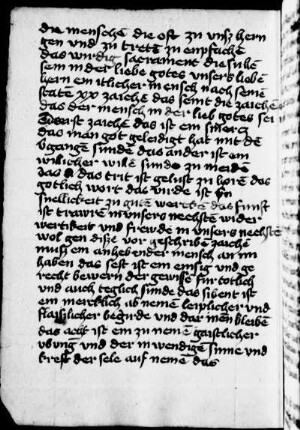 die mensche die oft zu unsz hern
gen und zu trett zu enpfache
das wirdig sacrament die sülle
sein in der liebe gotes unsers liebe
hern ein itlicher mensch nach seine
state xx zaiche das seint die zaiche
das der mensch in der lieb gotes sei
erst zaiche das ist ein
das man got geleidigt hat mit de
v'gange sünde das ander ist ein
williclicher wille sünde zu meide
das trit ist gelust zu hore das
gotlich wort das virde ist
snellickeit zu gute wercke das funft
ist trawre in unsers nechsten wider
wertikeit und freude in unsers nechste
wol gen disze vor geschribe zaiche
musz ein anhebender mensch an im
haben das sest ist ein emsig und ge
recht bewern der gewisse für totlich
und auch teglich sünde das sibent ist
ein mercklich ab nemen leiplicher und
flaischlicher begirde und dar inen bleiben
das acht ist ein zu nemē gaistlicher
ubung und der inwendigē sinne und
kreft der sele auf neme das